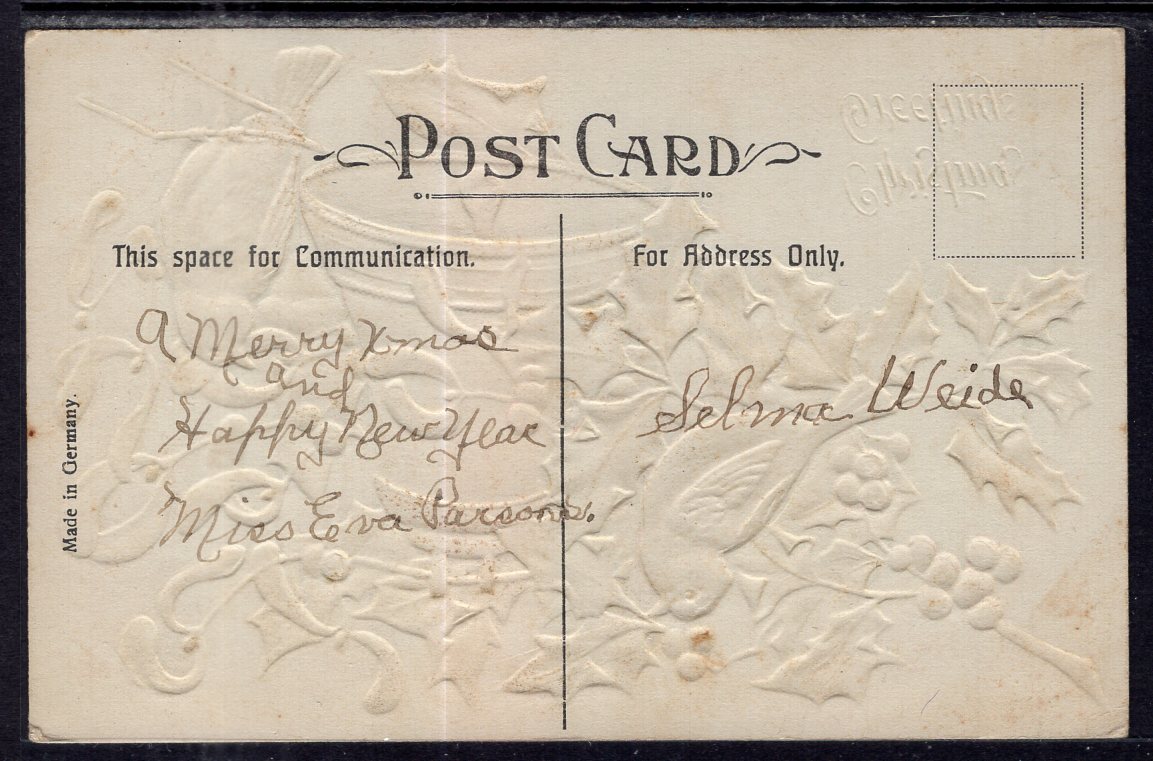 POST CARD
This space for Communication.
For Address Only.
A Merry Xmas
and
Happy New Year
Miss Eva Parsons.
Selma Weide
Made in Germany.
Christmas
Greetings